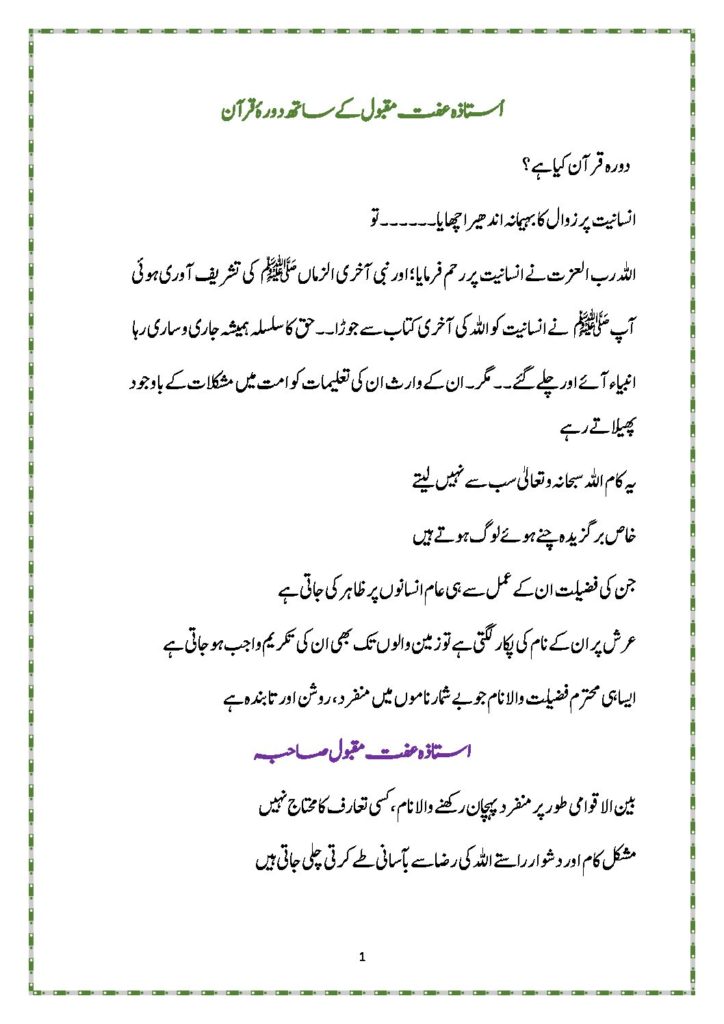 اُستاذہ عفت مقبول کے ساتھ دورۂ قرآن
دورہ قرآن کیا ہے؟
انسانیت پر زوال کا بہیمانہ اندھیرا چھایا۔۔۔۔۔۔ تو
اللہ رب العزت نے انسانیت پر رحم فرمایا؛ اور نبی آخری الزماں ﷺ کی تشریف آوری ہوئی
آپ ﷺ نے انسانیت کو اللہ کی آخری کتاب سے جوڑا۔۔ حق کا سلسلہ ہمیشہ جاری و ساری رہا
انبیاء آئے اور چلے گئے۔۔ مگر۔ ان کے وارث ان کی تعلیمات کو امت میں مشکلات کے باوجود
پھیلاتے رہے
یہ کام اللہ سبحانہ و تعالیٰ سب سے نہیں لیتے
خاص برگزیدہ چنے ہوئے لوگ ہوتے ہیں
جن کی فضیلت ان کے عمل سے ہی عام انسانوں پر ظاہر کی جاتی ہے
عرش پر ان کے نام کی پکار لگتی ہے تو زمین والوں تک بھی ان کی تکریم واجب ہو جاتی ہے
ایسا ہی محترم فضیلت والا نام جو بے شمار ناموں میں منفرد، روشن اور تابندہ ہے
استاذہ عفت مقبول صاحبہ
بین الاقوامی طور پر منفرد پہچان رکھنے والا نام، کسی تعارف کا محتاج نہیں
مشکل کام اور دشوار راستے اللہ کی رضا سے بآسانی طے کرتی چلی جاتی ہیں
1